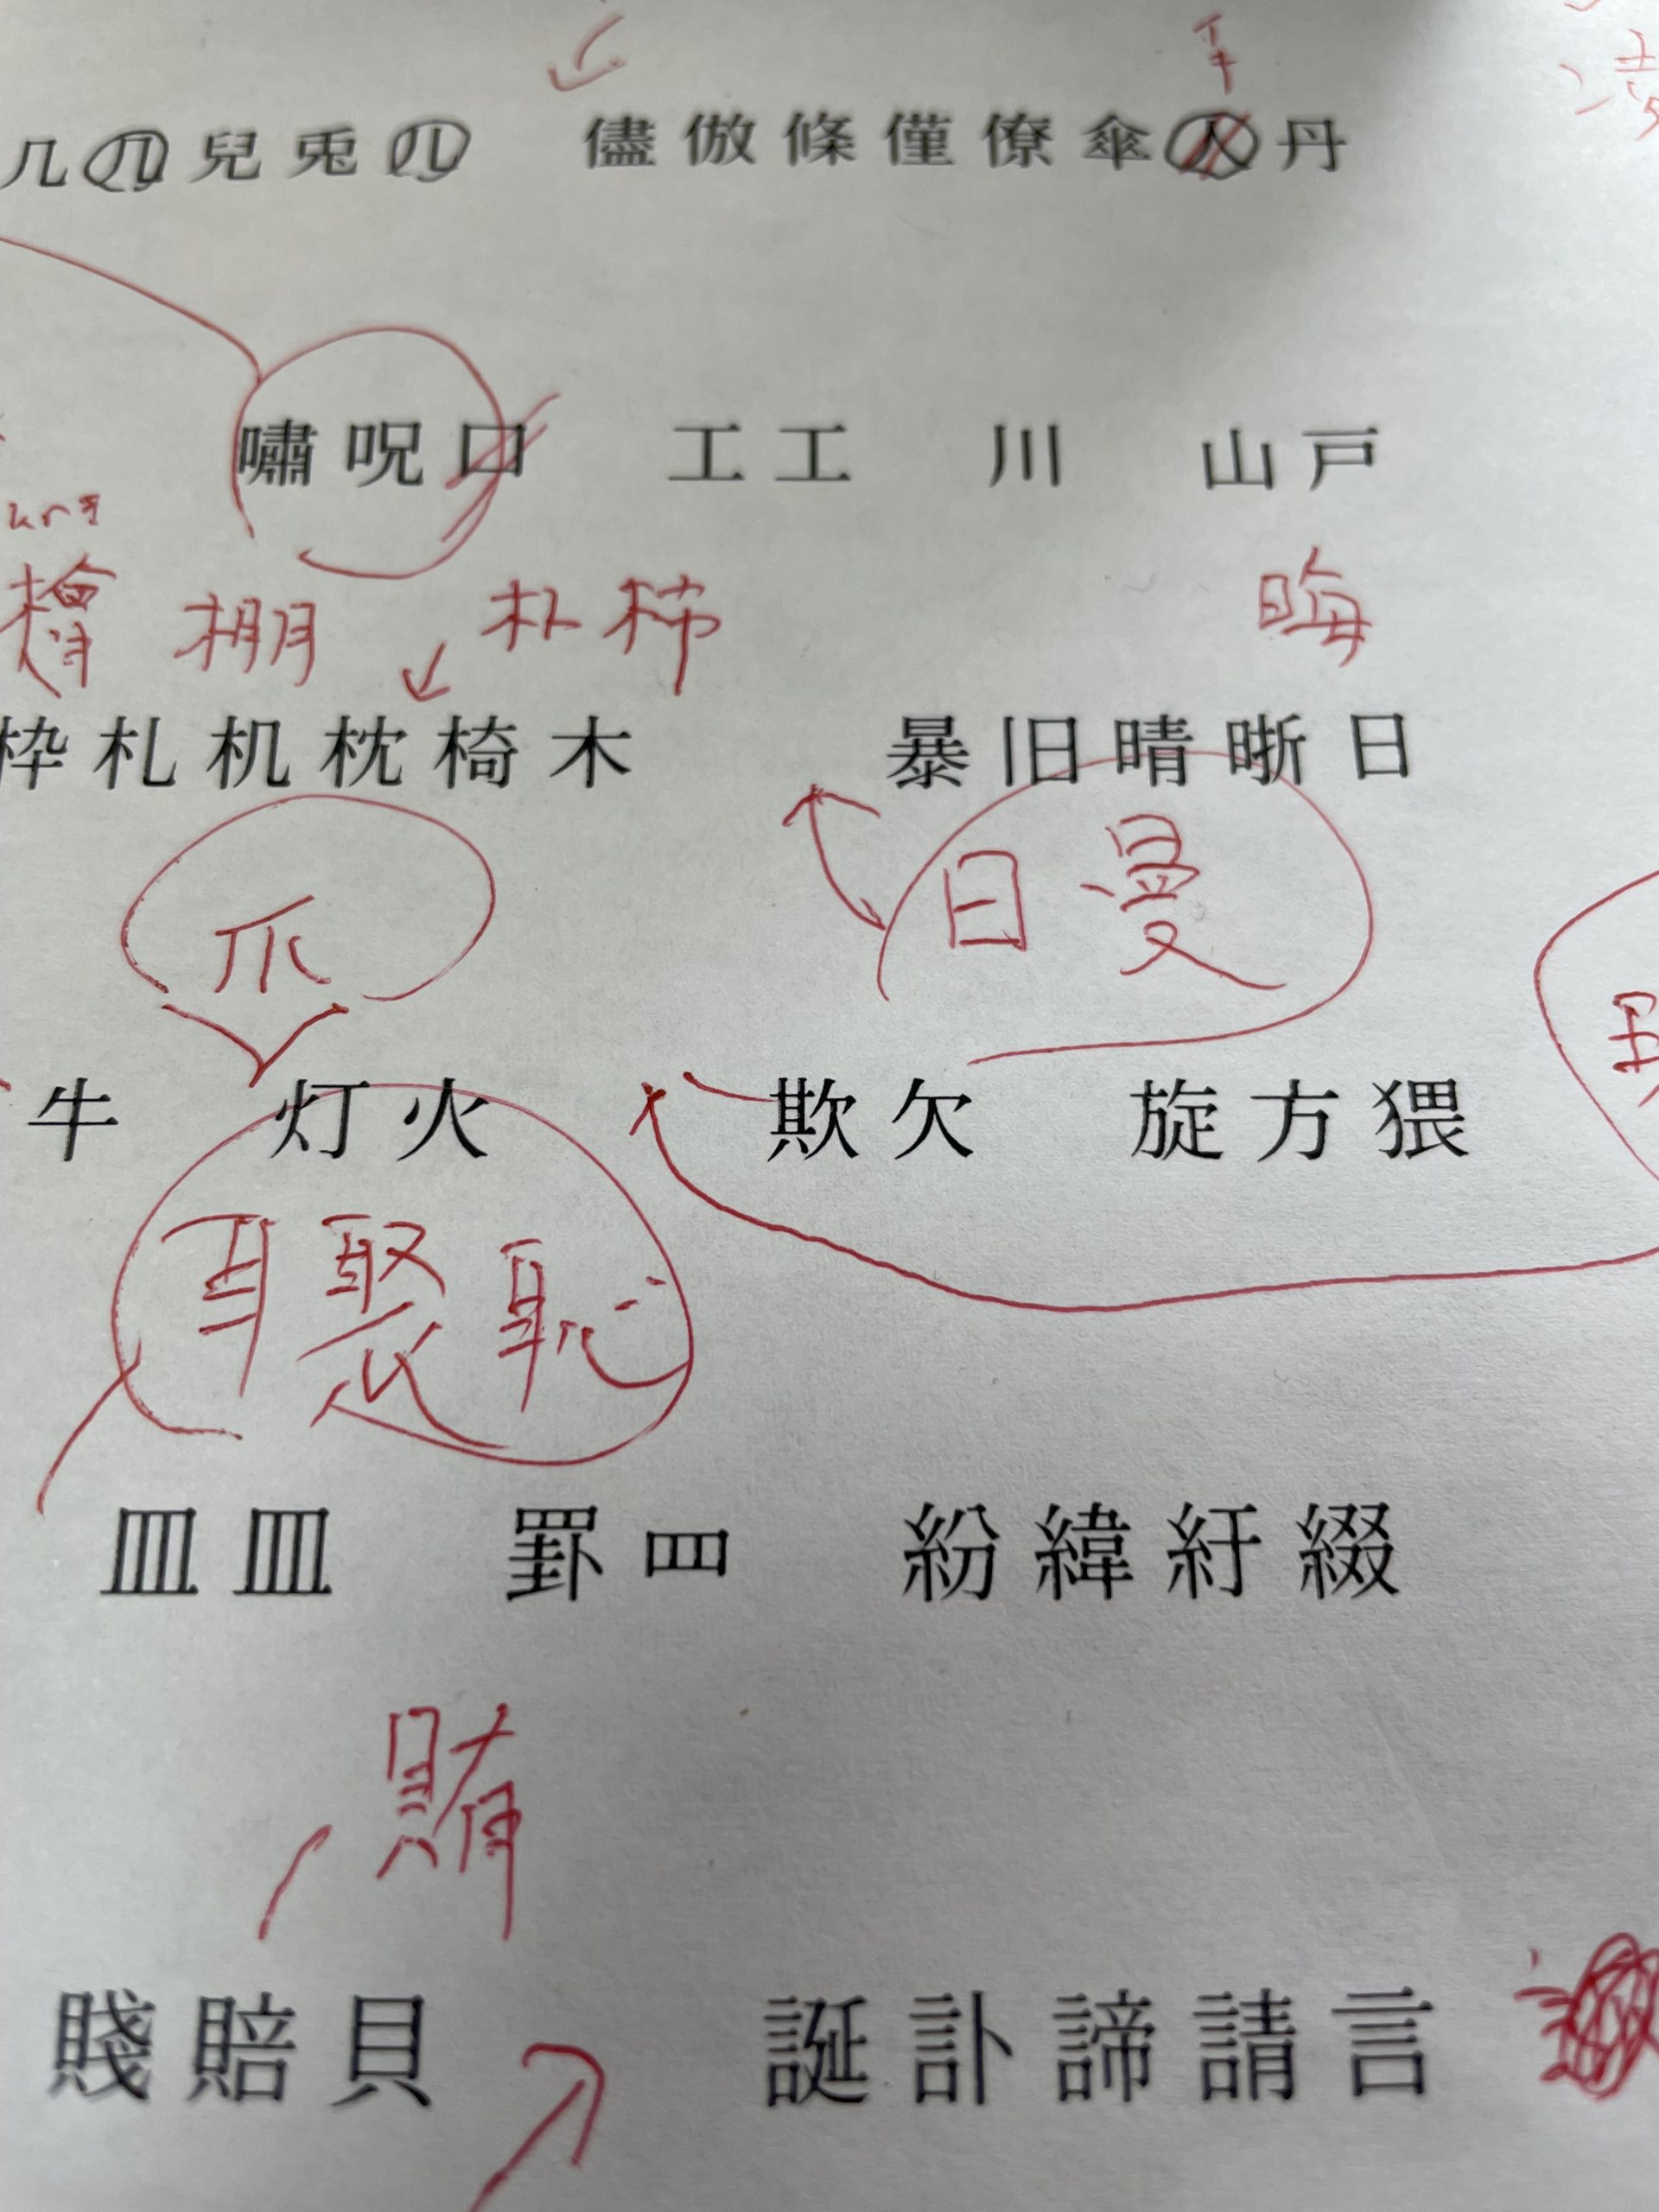 几 几 兒 兎 儿 儘 倣 條 僅 僚 傘 人 丹
嘯 呪 口 工 工 川 山 戸
棚 朴 柿 晦
枠 札 机 枕 椅 木 暴 旧 晴 晰 日
爪 曰 曼
牛 灯 火 欺 欠 旋 方 猥
耳 聚 恥
皿 皿 罫 罒 紛 緯 紆 綴
賄
賤 賠 貝 誕 訃 諦 請 言